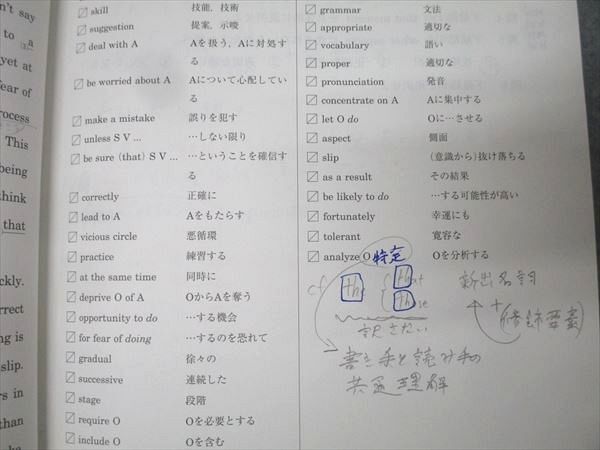 n't say
to a
yet at
fear of
rocess
This
being
think
that
ckly.
rrect
ng is
slip.
rs in
than
skill 技能、技術
suggestion 提案、示唆
deal with A Aを扱う、Aに対処す
る
be worried about A Aについて心配してい
る
make a mistake 誤りを犯す
unless S V ... …しない限り
be sure (that) S V ... …ということを確信す
る
correctly 正確に
lead to A Aをもたらす
vicious circle 悪循環
practice 練習する
at the same time 同時に
deprive O of A OからAを奪う
opportunity to do …する機会
for fear of doing …するのを恐れて
gradual 徐々の
successive 連続した
stage 段階
require O Oを必要とする
include O Oを含む
grammar 文法
appropriate 適切な
vocabulary 語い
proper 適切な
pronunciation 発音
concentrate on A Aに集中する
let O do Oに…させる
aspect 側面
slip (意識から)抜け落ちる
as a result その結果
be likely to do …する可能性が高い
fortunately 幸運にも
tolerant 寛容な
analyze O Oを分析する
特定
cf the that 新出名詞
those + (修飾要素)
訳さない
書き手と読み手の
共通理解